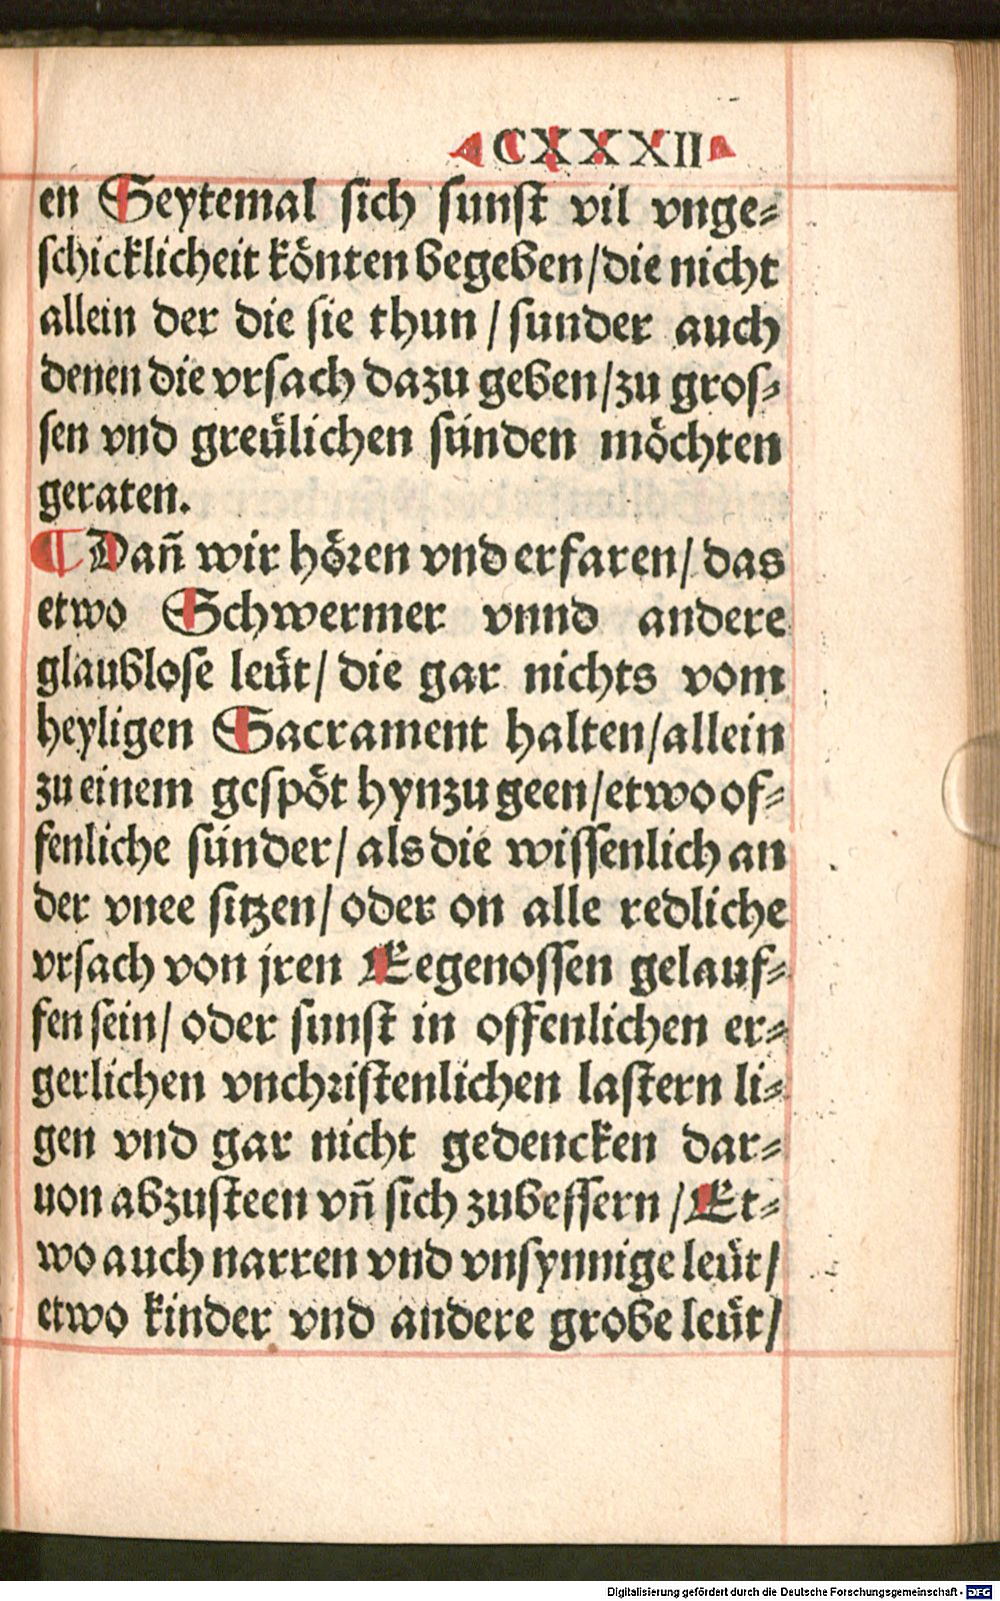 CXXXII
en Seytemal sich sunst vil vnge⸗
schicklicheit koͤnten begeben/die nicht
allein der die sie thun/sunder auch
denen die vrsach dazu geben/zu gros⸗
sen vnd greuͤlichen suͤnden moͤchten
geraten.
¶ Dañ wir hoͤren vnd erfaren/das
etwo Schwermer vnnd andere
glaublose leuͤt/die gar nichts vom
heyligen Sacrament halten/allein
zu einem gespoͤt hynzu geen/etwo of⸗
fenliche suͤnder/als die wissenlich an
der vnee sitzen/oder on alle redliche
vrsach von jren Eegenossen gelauf⸗
fen sein/oder sunst in offenlichen er⸗
gerlichen vnchristenlichen lastern li⸗
gen vnd gar nicht gedencken dar⸗
uon abzusteen vñ sich zubessern/Et⸗
wo auch narren vnd vnsynnige leuͤt/
etwo kinder vnd andere grobe leuͤt/
Digitalisierung gefördert durch die Deutsche Forschungsgemeinschaft - DFG